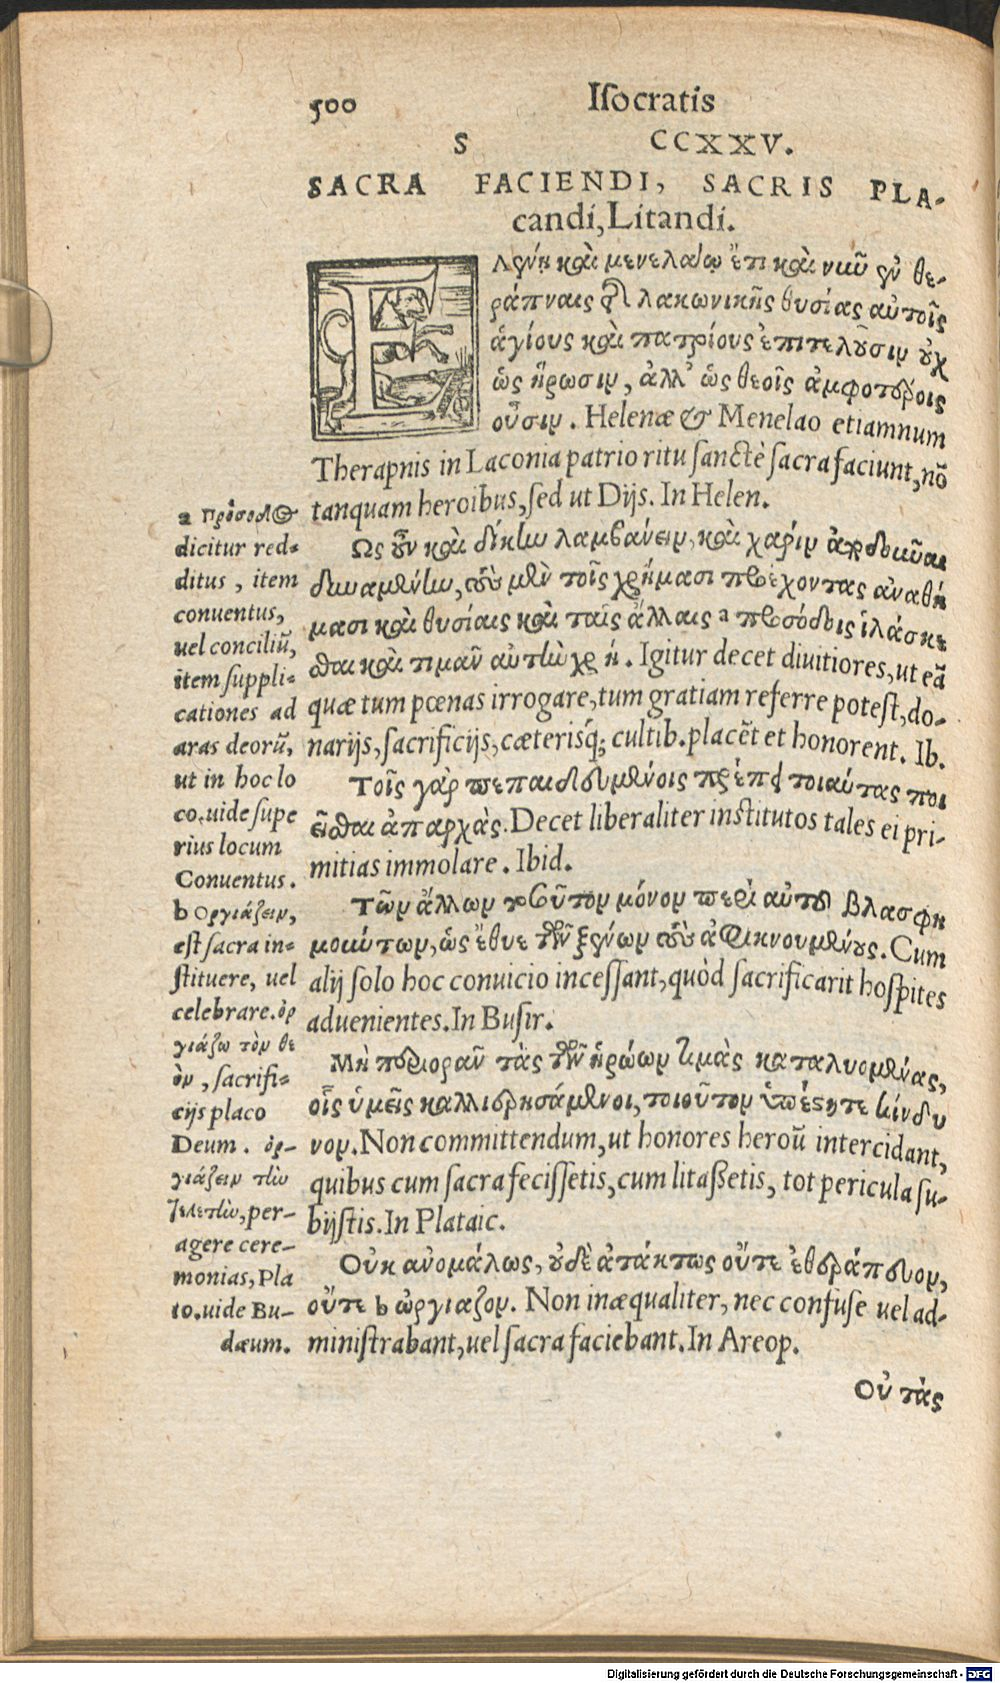 500 Isocratis
S CCXXV.
SACRA FACIENDI, SACRIS PLA-
candi, Litandi.
Ελένῃ καὶ μενελάῳ ἔτι καὶ νιῦ ἐν θε-
ράπναις τῆς λακωνικῆς θυσίας αὐτοῖς
ἁγίους καὶ πατρίους ἐπιτελοῦσιν οὐχ
ὡς ἥρωσιν, ἀλλ' ὡς θεοῖς ἀμφοτέροις
οὖσιν. Helenæ & Menelao etiamnum
Therapnis in Laconia patrio ritu sanctè sacra faciunt, nō
tanquam heroibus, sed ut Dijs. In Helen.
Ως οὖν καὶ δίκην λαμβάνειν, καὶ χάριν ἀποδοῦναι
δυναμένην, τοὺς μὲν τοῖς χρήμασι προέχοντας ἀναθή
μασι καὶ θυσίαις καὶ ταῖς ἄλλαις a προσόδοις ἱλάσκε
σθαι καὶ τιμᾶν αὐτὴν χρή. Igitur decet divitiores, ut eā
quæ tum pœnas irrogare, tum gratiam referre potest, do-
narijs, sacrificijs, cæterisq; cultib. placēt et honorent. Ib.
Τοῖς γὰρ πεπαιδευμένοις πρέπει τοιαύτας ποι
εῖσθαι ἀπαρχὰς. Decet liberaliter institutos tales ei pri-
mitias immolare. Ibid.
Τῶν ἄλλων τοῦτον μόνον περὶ αὐτοῦ βλασφη
μούντων, ὡς ἔθυε τῶν ξένων τοὺς ἀφικνουμένους. Cum
alij solo hoc convicio incessant, quòd sacrificarit hospites
aduenientes. In Busir.
Μὴ περιορᾶν τὰς τῶν ἡρώων τιμὰς καταλυομένας,
οἷς ὑμεῖς καλλιερησάμενοι, τοιοῦτον ὑπέστητε κίνδυ
νον. Non committendum, ut honores heroū intercidant,
quibus cum sacra fecissetis, cum litassetis, tot pericula su-
bijstis. In Plataic.
Οὐκ ἀνομάλως, οὐδὲ ἀτάκτως οὔτε ἐθεράπευον,
οὔτε b ὠργίαζον. Non inæqualiter, nec confuse uel ad-
ministrabant, uel sacra faciebant. In Areop.
Οὐ τὰς
a πρόσοδος
dicitur red-
ditus, item
conuentus,
uel conciliū,
item suppli-
cationes ad
aras deorū,
ut in hoc lo
co. uide supe
rius locum
Conuentus.
b Οργιάζειν,
est sacra in-
stituere, uel
celebrare. ὀρ
γιάζω τὸν θε
ὸν, sacrifi-
cijs placo
Deum. ὀρ-
γιάζειν τὴν
τελετὴν, per-
agere cere-
monias, Pla
to. uide Bu-
dæum.
Digitalisierung gefördert durch die Deutsche Forschungsgemeinschaft - DFG